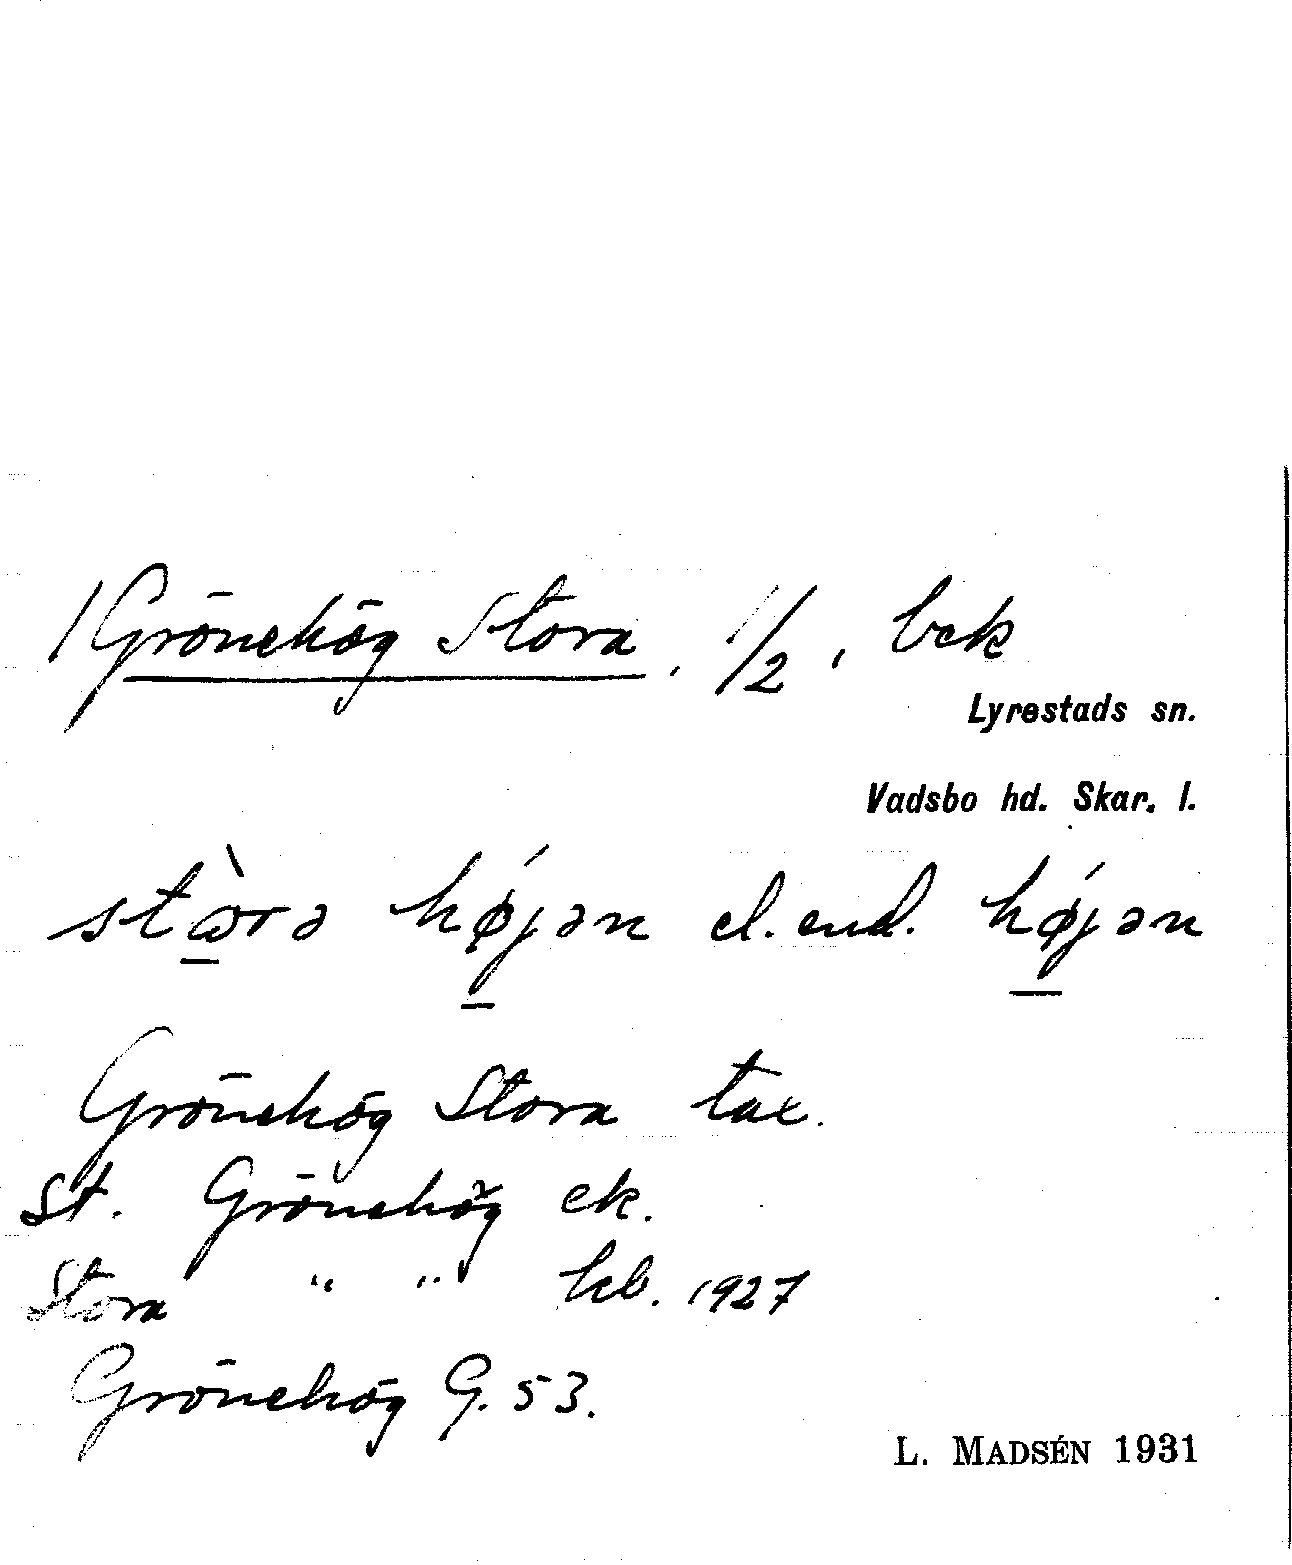 1 Grönehög Stora, 1/2, bek
Lyrestads sn.
Vadsbo hd. Skar. l.
stὼra hǿjən el. end. hǿjən
Grönehög Stora tax.
St. Grönehög ek.
Stora " " kb. 1927
Grönehög G. 53.
L. MADSÉN 1931